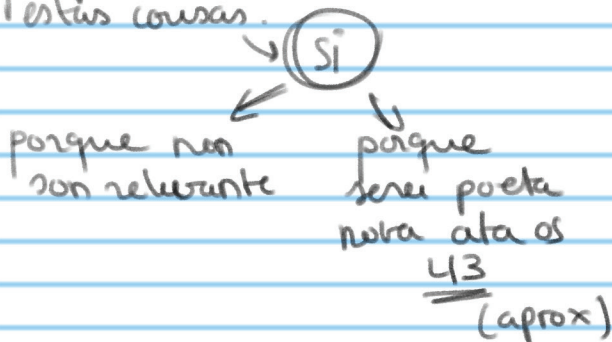 estas cousas.
Si
porque non
son relevante
porque
serei poeta
nova ata os
43
(aprox)